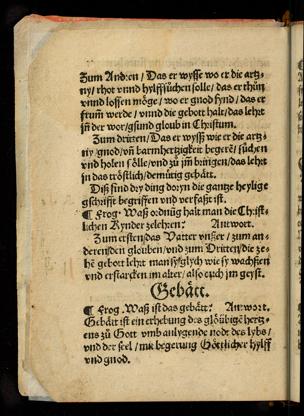 Zum Andren / Das er wysse wo er die artz-
ny / rhot vnnd hylff suchen solle / das er thün
vnnd lossen möge / wo er gnod fynd / das er
frum werde / vnnd die gebott halt / das lehrt
in der wor / gsund gloub in Christum.
Zum dritten / Das er wyß wie er die artz-
ny / gnod / vnn barmhertzigkeit begere / suchen
vnd holen sölle / vnd zu jm bringen / das lehrt
in das tröstlich / demütig gebätt.
Diß sind dry ding doryn die gantze heylige
gschrifft begriffen vnd verfaßt ist.
¶ Frog. Waß ordnüg halt man die Christ-
lichen Kynder zelehren: Antwort.
Zum ersten / das Vatter vnßer / zum an-
deren / den glouben / vnd zum Dritten / die ze-
hē gebott lehrt man sy / glych wie sy wachßen
vnd erstarcken im alter / also ouch jm geyst.
Gebätt.
¶ Frog. Waß ist das gebätt: Antwort.
Gebätt ist ein erhebung des glöubigē hertz-
ens zü Gott vmb anlygende nodt des lybs /
vnd der seel / mit begerung Göttlicher hylff
vnd gnod.